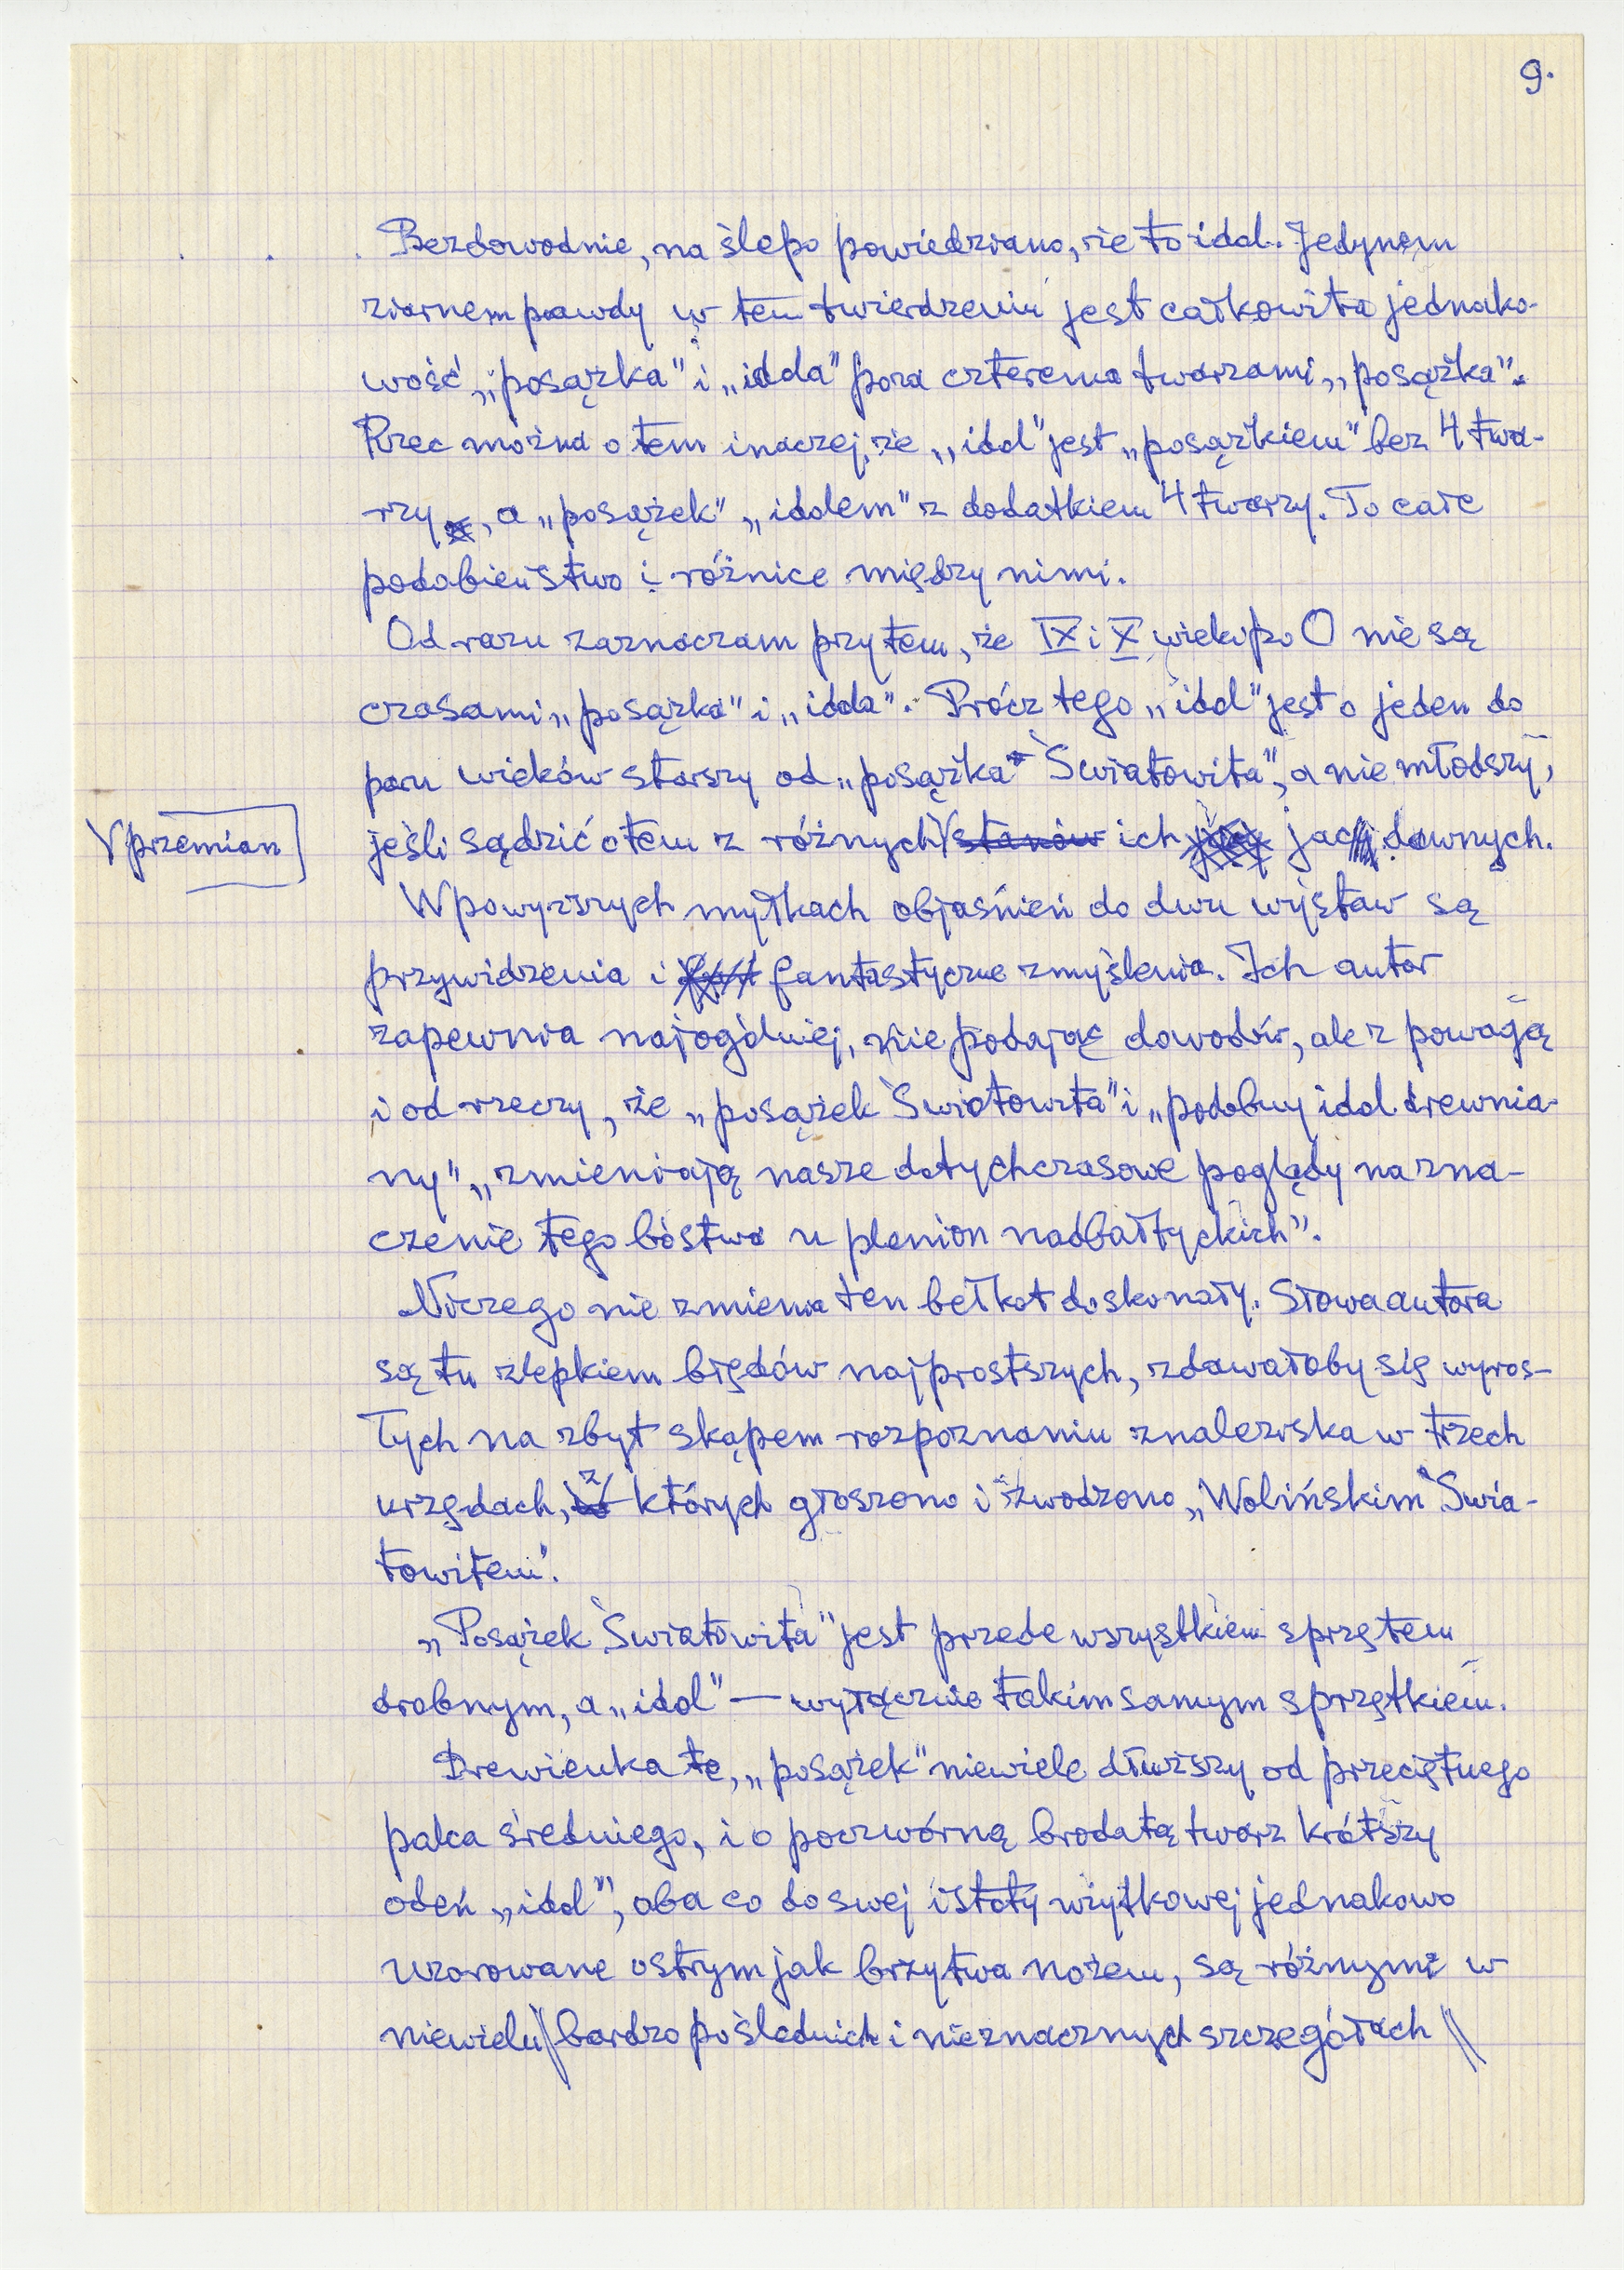 9.
Bezdowodnie, na ślepo powiedziano, że to idol. Jedynem
ziarnem prawdy w tem twierdzeniu jest całkowita jednako-
wość „posążka” i „idola” poza czterema twarzami „posążka”.
Rzec można o tem inaczej, że „idol” jest „posążkiem” bez 4 twa-
rzy, a „posążek” „idolem” z dodatkiem 4 twarzy. To całe
podobieństwo i różnice między nimi.
Od razu zaznaczam przytem, że IX i X wieki po O nie są
czasami „posążka” i „idola”. Prócz tego „idol” jest o jeden do
paru wieków starszy od „posążka Światowita”, a nie młodszy,
V przemian
jeśli sądzić o tem z różnych V stanów ich jać dawnych.
W powyższych myłkach objaśnień do dwu wystaw są
przywidzenia i fantastyczne zmyślenia. Ich autor
zapewnia najogólniej, nie podając dowodów, ale z powagą
i od rzeczy, że „posążek Światowita” i „podobny idol drewnia-
ny” „zmieniają nasze dotychczasowe poglądy na zna-
czenie tego bóstwa u plemion nadbałtyckich”.
Niczego nie zmienia ten bełkot doskonały. Słowa autora
są tu zlepkiem błędów najprostszych, zdawałoby się wyros-
łych na zbyt skąpem rozpoznaniu znaleziska w trzech
urzędach, z których głoszono i zwodzono „Wolińskim Świa-
towitem”.
„Posążek Światowita” jest przede wszystkiem sprzętem
drobnym, a „idol” — wyłącznie takim samym sprzętkiem.
Drewienka te, „posążek” niewiele dłuższy od przeciętnego
palca średniego, i o poczwórną brodatą twarz krótszy
odeń „idol”, oba co do swej istoty użytkowej jednakowo
wzorowane ostrym jak brzytwa nożem, są różnymi w
niewielu \\ bardzo poślednich i nieznacznych szczegółach \\